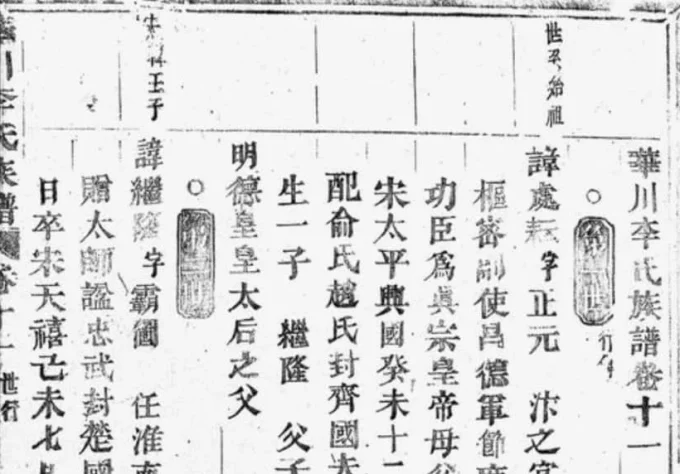 華川李氏族譜卷十一
世系始祖
行傳
諱處耘字正元 汴之
樞密副使昌德軍節
功臣爲眞宗皇帝母
宋太平興國癸未十二
配俞氏趙氏封齊國太
生一子 繼隆 父子
明德皇皇太后之父
壬子
諱繼隆字霸圖 任淮
贈太師諡忠武封楚國
日卒宋天禧己未七月
川李氏族譜 卷十一 世行